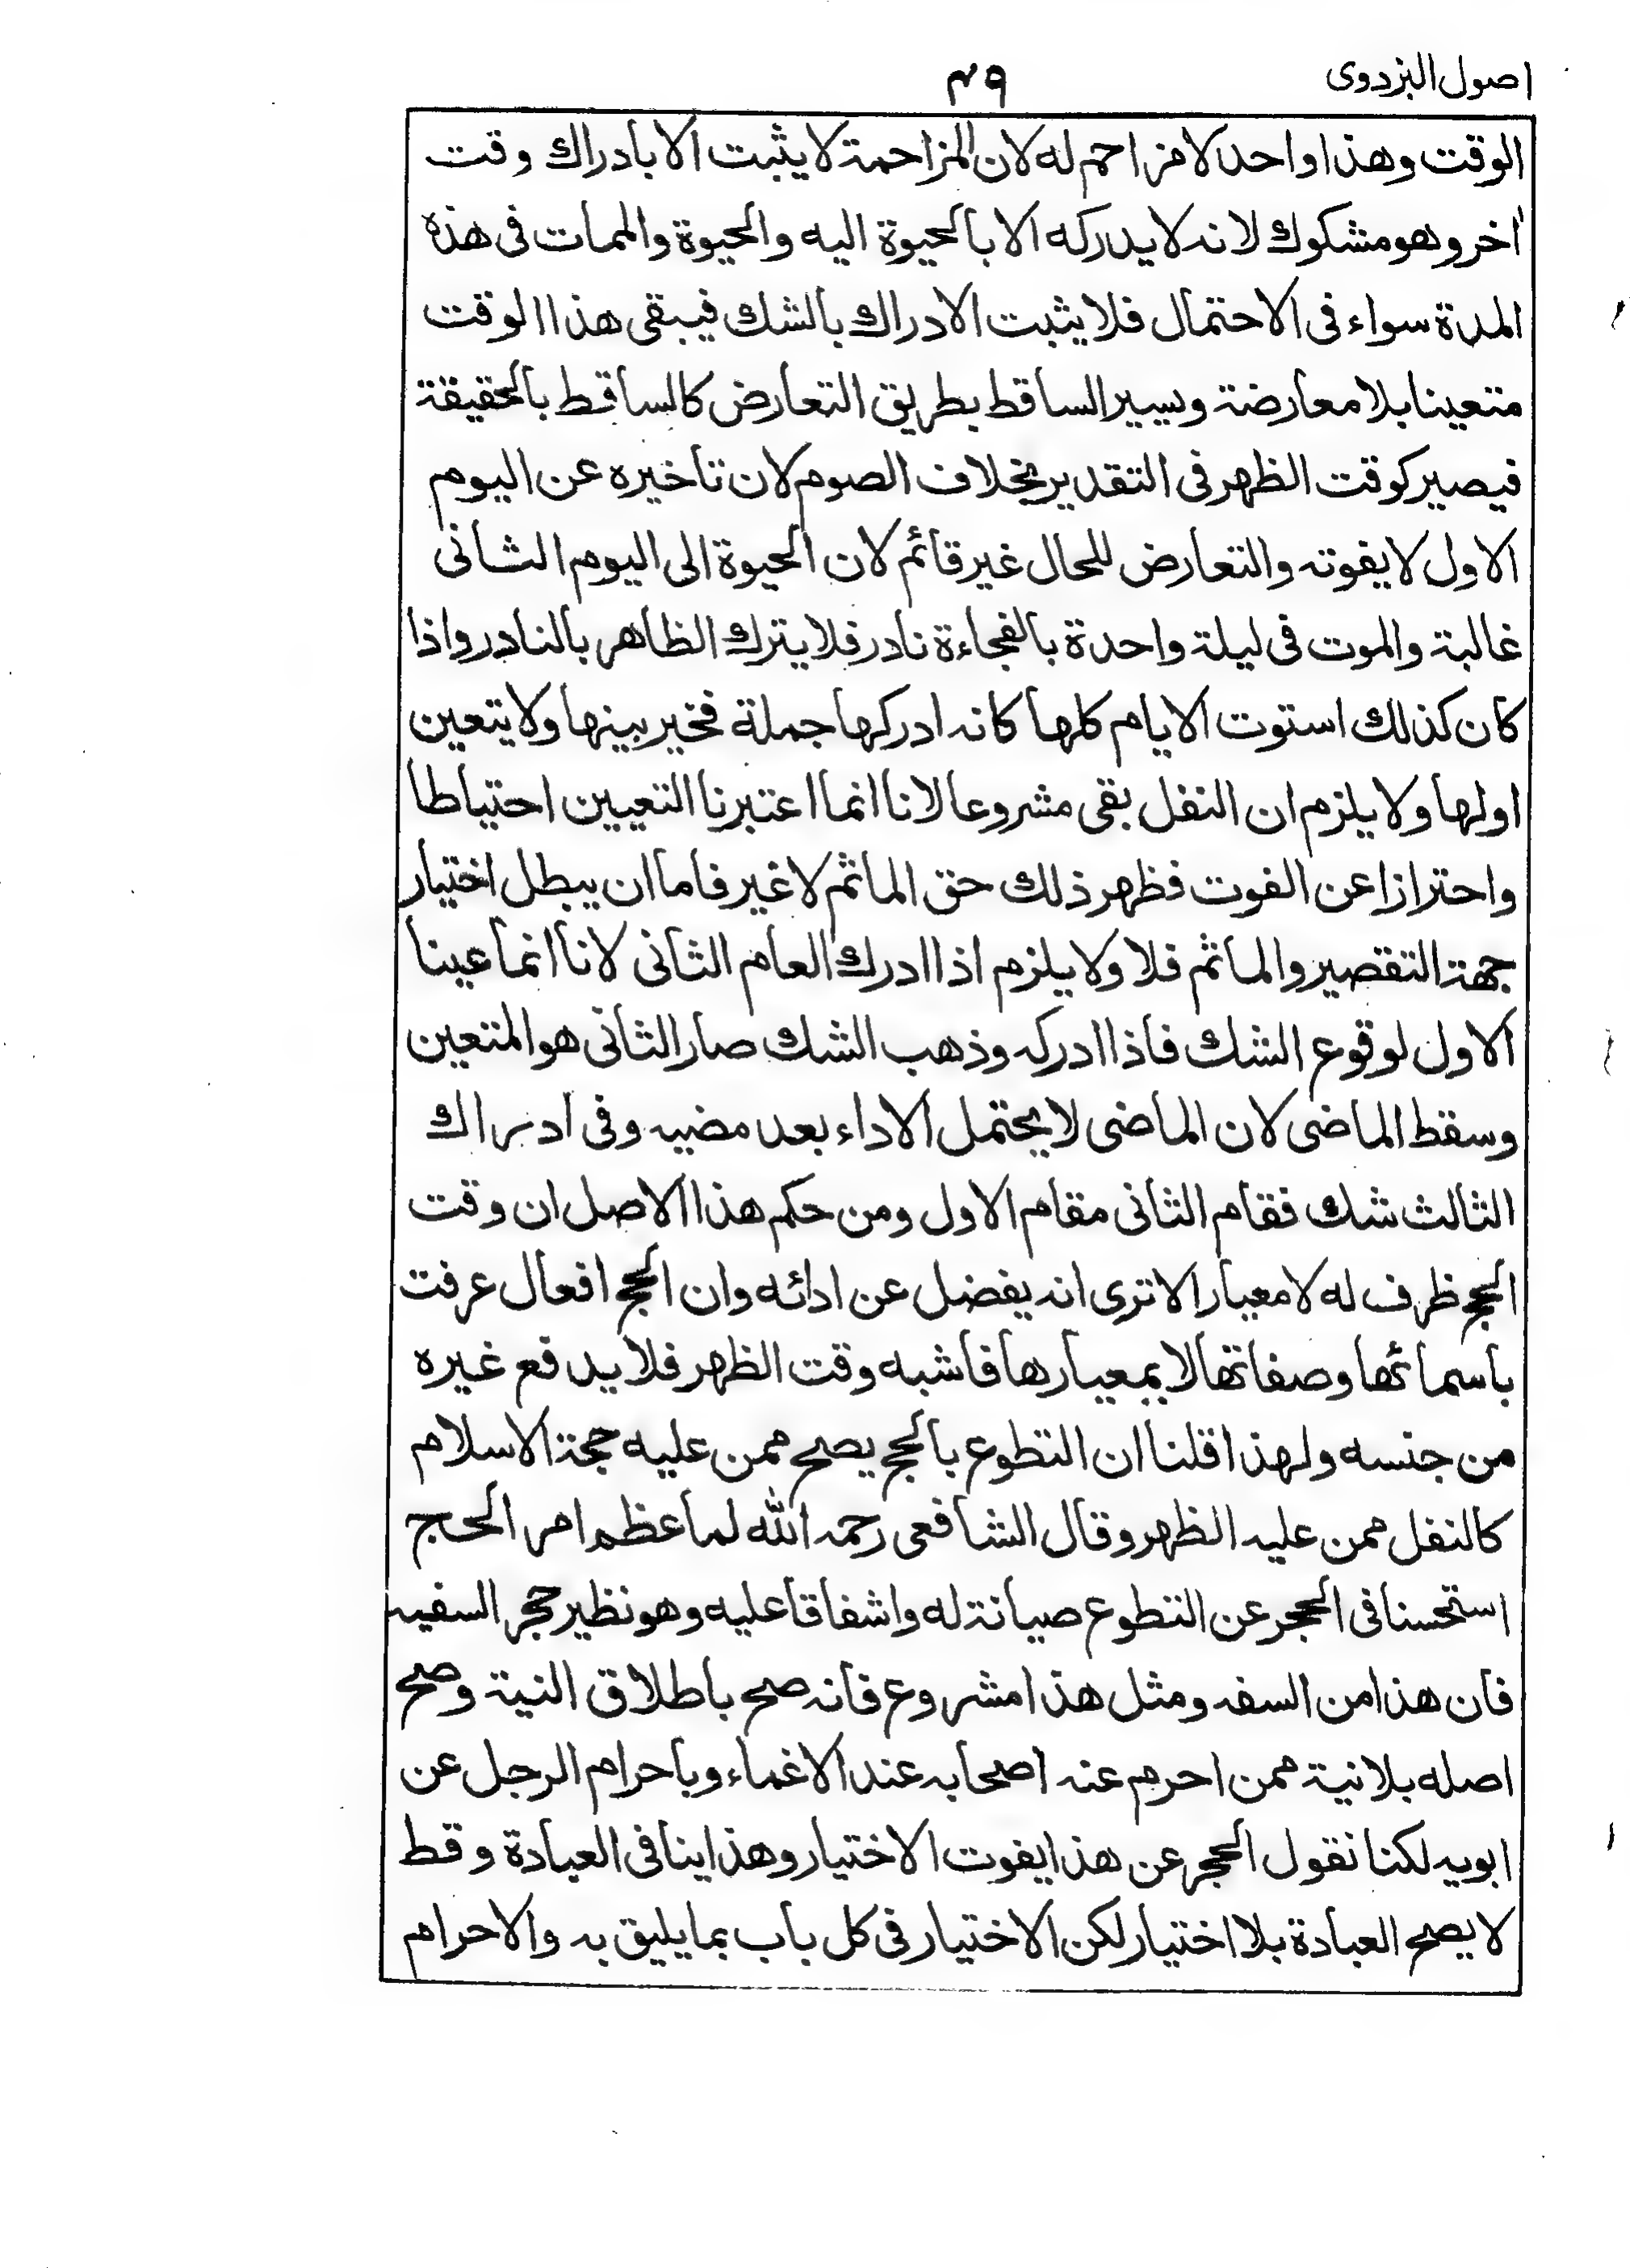 اصول البزدوی
۴۹
الوقت وهذا واحد لا مزاحم له لان المزاحمة لا یثبت الا بادراك وقت
اٰخر وهو مشكوك لانه لا یدركه الا بالحیوة الیه والحیوة والممات فی هذه
المدة سواء فی الاحتمال فلا یثبت الادراك بالشك فیبقی هذا الوقت
متعینا بلا معارضة ویسیر الساقط بطریق التعارض كالساقط بالحقیقة
فیصیر كوقت الظهر فی التقدیر بخلاف الصوم لان تاخیره عن الیوم
الاول لا یفوته والتعارض للحال غیر قائم لان الحیوة الی الیوم الثانی
غالبة والموت فی لیلة واحدة بالفجاءة نادر فلا یترك الظاهر بالنادر واذا
كان كذلك استوت الایام كلها كانه ادركها جملة فخیر بینها ولا یتعین
اولها ولا یلزم ان النفل بقی مشروعا لانا انما اعتبرنا التعیین احتیاطا
واحترازا عن الفوت فظهر ذلك حق الماثم لا غیر فاما ان یبطل اختیار
جهة التقصیر والماثم فلا ولا یلزم اذا ادرك العام الثانی لانا انما عینا
الاول لوقوع الشك فاذا ادركه وذهب الشك صار الثانی هو المتعین
وسقط الماضی لان الماضی لا یحتمل الاداء بعد مضیه وفی ادراك
الثالث شك فقام الثانی مقام الاول ومن حكم هذا الاصل ان وقت
الحج ظرف له لا معیار الا تری انه یفضل عن ادائه وان الحج افعال عرفت
باسمائها وصفاتها لا بمعیارها فاشبه وقت الظهر فلا یدفع غیره
من جنسه ولهذا قلنا ان التطوع بالحج یصح ممن علیه حجة الاسلام
كالنفل ممن علیه الظهر وقال الشافعی رحمه الله لما عظم امر الحج
استحسنا فی الحجر عن التطوع صیانة له واشفاقا علیه وهو نظیر حجر السفیه
فان هذا من السفه ومثل هذا مشروع فانه صح باطلاق النیة وصح
اصله بلا نیة ممن احرم عنه اصحابه عند الاغماء وباحرام الرجل عن
ابویه لكنا نقول الحجر عن هذا یفوت الاختیار وهذا ینافی العبادة وقط
لا یصح العبادة بلا اختیار لكن الاختیار فی كل باب بما یلیق به والاحرام